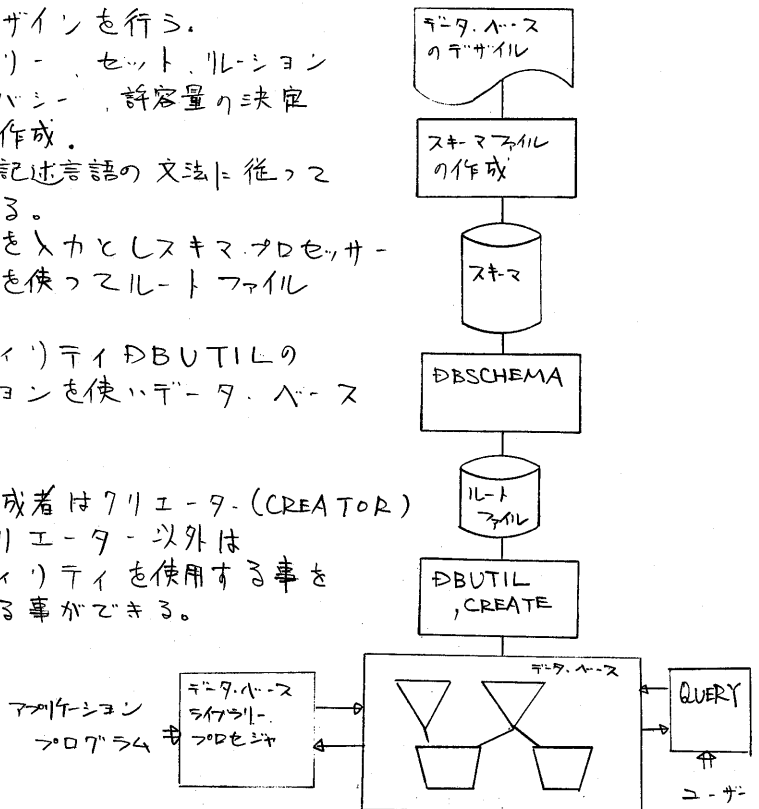 ザインを行う.
リー 、セット、リレーション
バシー 、許容量の決定
作成.
記述言語の文法に従って
る。
を入力としスキマ・プロセッサー
を使ってルートファイル
ィリティDBUTILの
ョンを使いデータ.ベース
成者はクリエーター(CREATOR)
リエーター以外は
ィリティを使用する事を
る事ができる。
データ.ベース
のデザイル
スキーマファイル
の作成
スキーマ
DBSCHEMA
ルート
ファイル
DBUTIL
,CREATE
データ.ベース
アプリケーション
プログラム
データ.ベース
ライブラリー.
プロセジャ
QUERY
ユーザー